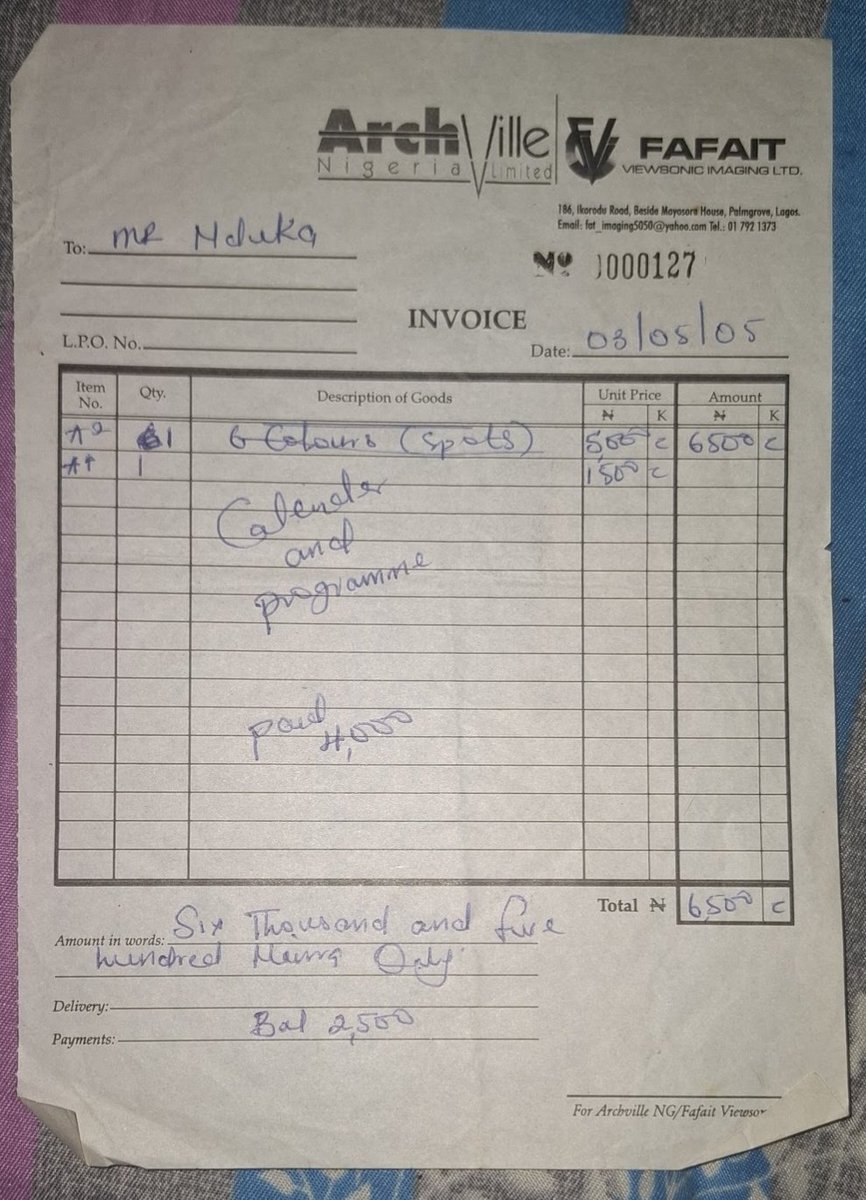 ArchVille
Nigeria Limited
FV FAFAIT
VIEWSONIC IMAGING LTD.
186, Ikorodu Road, Beside Mayosore House, Palmgrove, Lagos.
Email: fat_imaging5050@yahoo.com Tel.: 01 792 1373
To: Mr Nduka
Nº 0000127
INVOICE
L.P.O. No.
Date: 03/05/05
Item No. Qty. Description of Goods Unit Price Amount
₦ K ₦ K
A2 1 6 Colours (Spots) 5,000 6500
A4 1 1500
Calender
and
programme
paid
4,000
Total ₦ 6,500
Amount in words: Six Thousand and five
hundred Naira Only
Delivery:
Payments: Bal 2,500
For Archville NG/Fafait Viewso